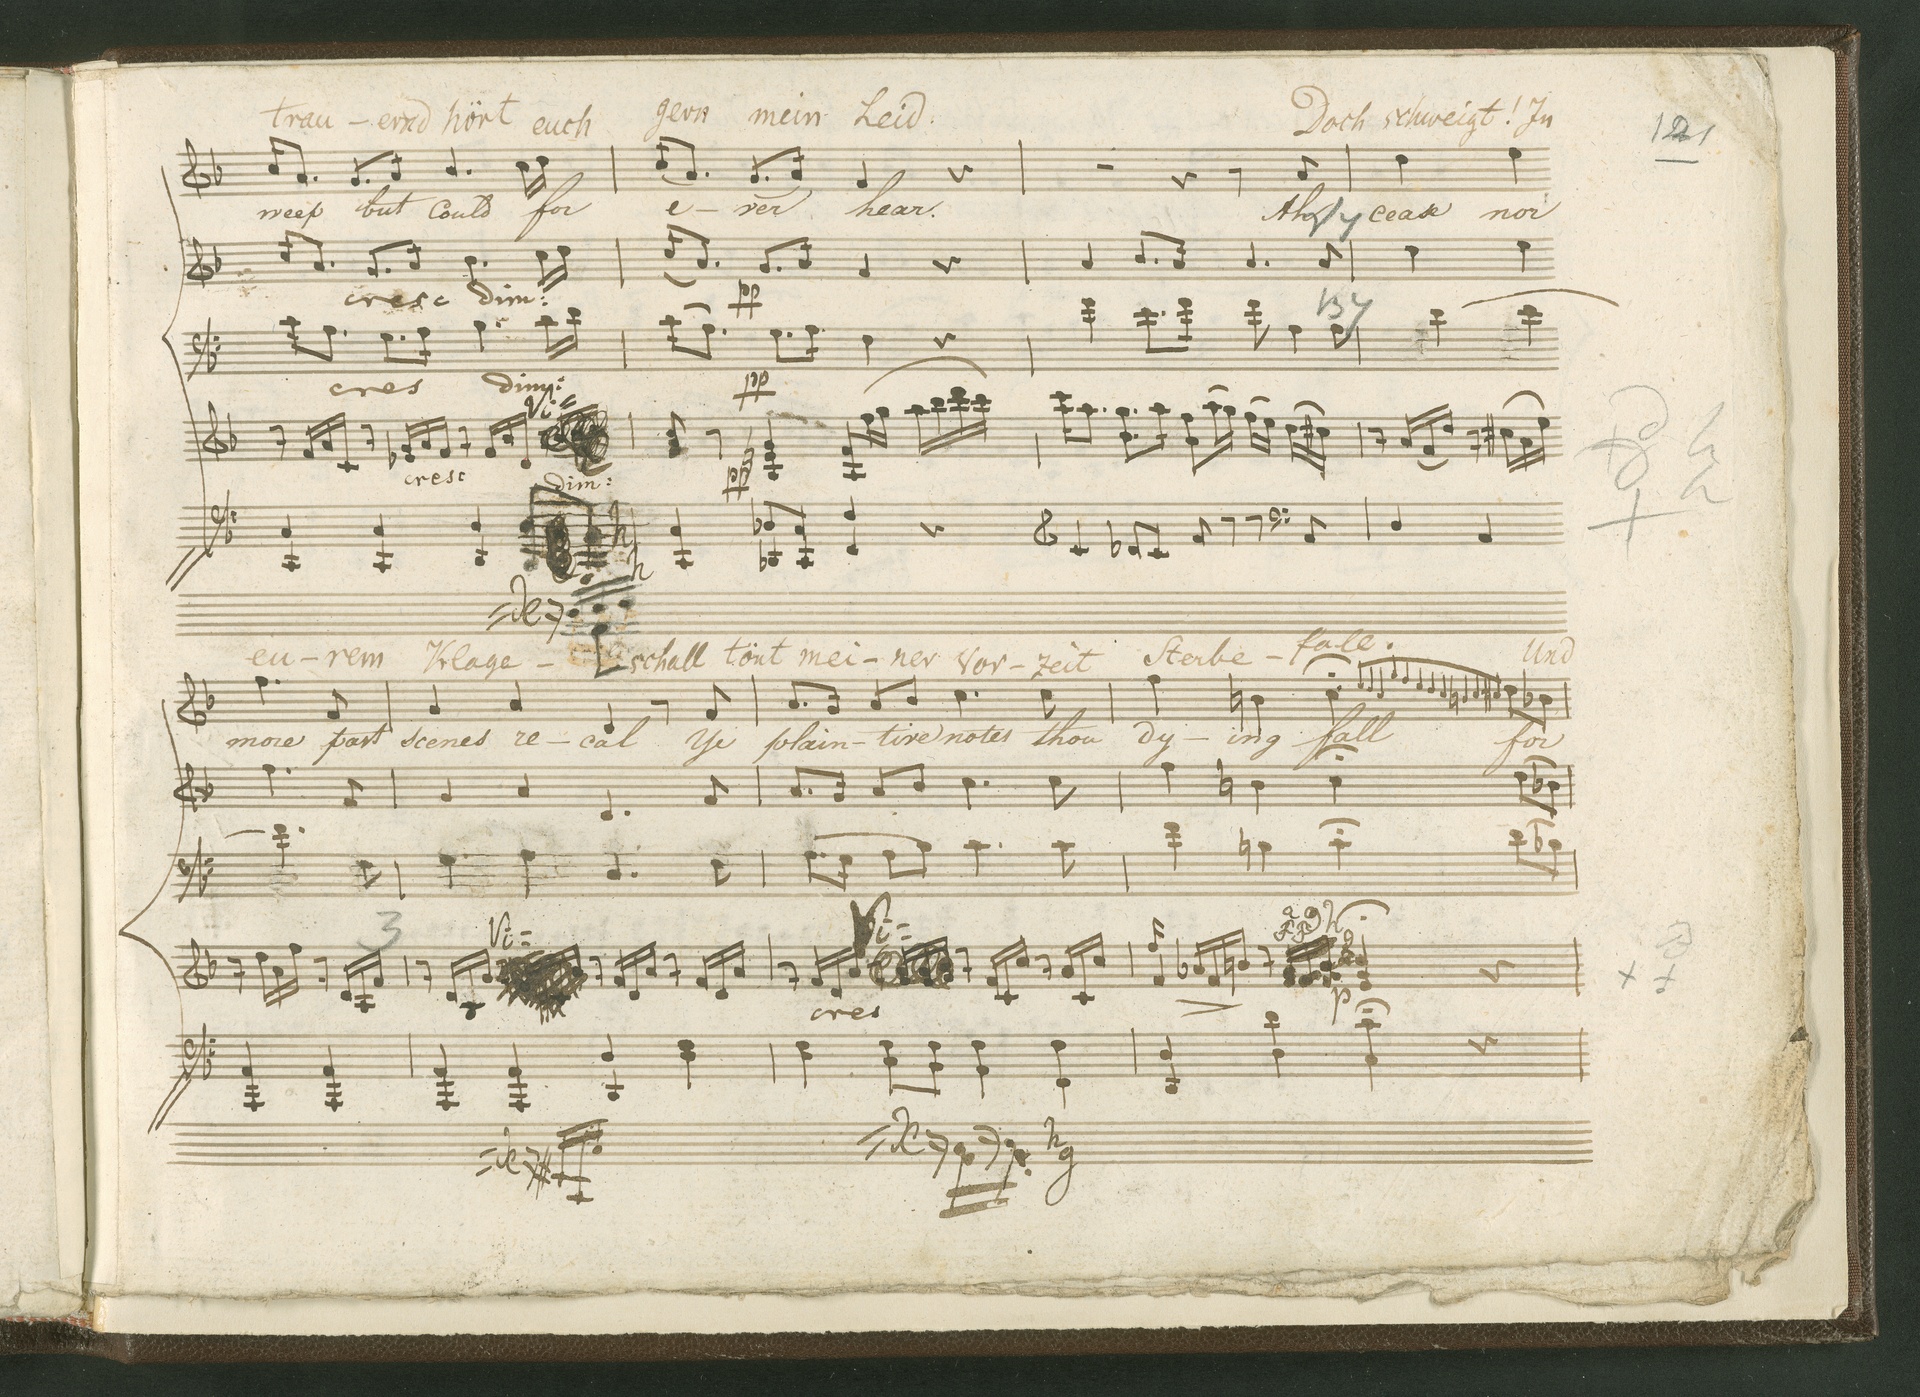 trau - ernd hört euch gern mein Leid. Doch schweigt! In
121
weep but could for e - ver hear. Ah cease nor
cresc dim: pp
cres dim: pp
Vi=
cresc dim: pp
h
=de h
eu - rem Klage - schall tönt mei - ner Vor - zeit Sterbe - falle. Und
more past scenes re - cal Ye plain - tive notes thou dy - ing fall for
3 Vi= Vi= h
cres p
=de =de h g